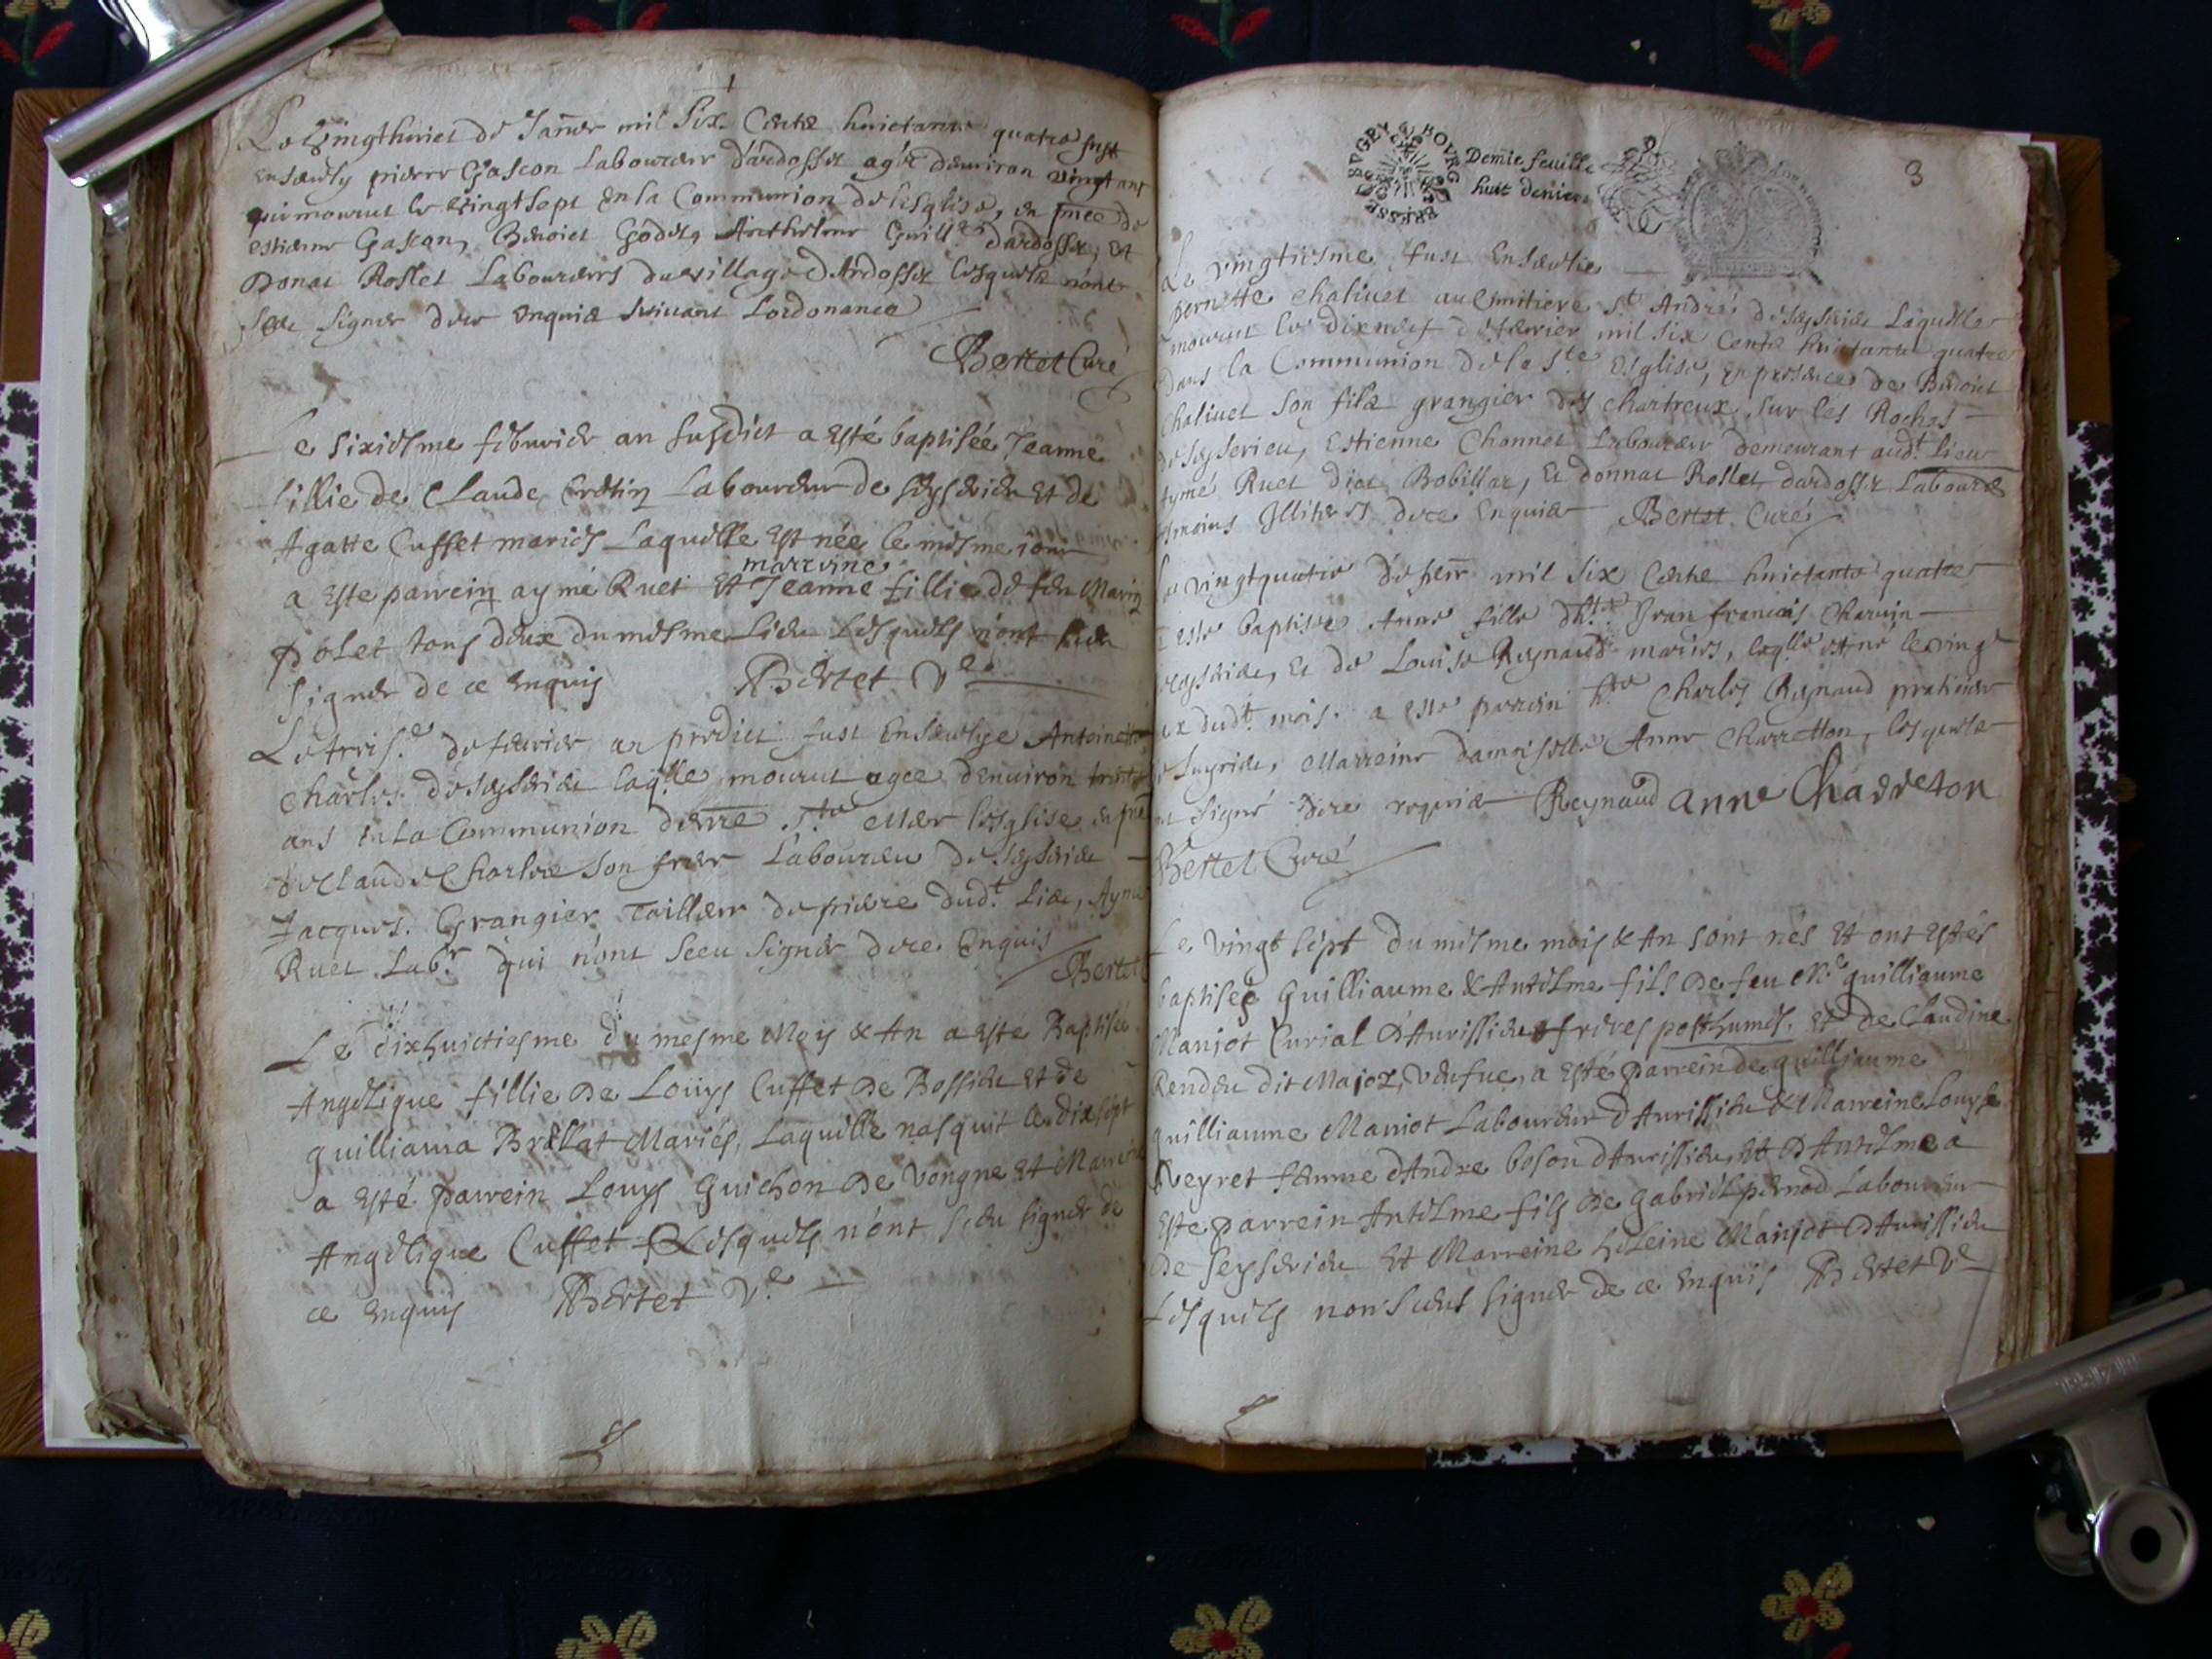 Le vingthuict de Janr mil six cents huictante quatre fust
ensevely pierre Gascon Laboureur dardosset agé denviron vingt ans
qui mourut le vingtsept en la Communion de lesglise, en pnce de
estienne Gascon, Benoict Godet, Anthelme Guille dardosset, et
Donat Rostet Laboureurs du village dArdosset lesquels nont
sceu signer de ce enquis suivant Lordonance
Bertet Curé
Le sixiesme febvrier an susdict a Esté baptisée Jeanne
fillie de Claude Cretin Laboureur de seyserieu Et de
Agatte Cuffet mariés Laquelle Est née le mesme iour
marreine
a Este parrein aymé Ruet Et Jeanne fillie de feu Marin
Polet tous deux du mesme Lieu Lesquels n'ont sceu
signer de ce Enquis Bertet Ve
Le treise de fevrier an predict fust Ensevelye Antoinette
Charles de seyserieu laqlle mourut agee denviron trente
ans en la Communion de nre Ste Mere lesglise en pnce
de Claude Charles son frere Laboureu de seyserieu
Jacques Grangier Tailleur de pierre dudt Lieu, Aymé
Ruet Labr qui n'ont sceu signer de ce Enquis
Bertet
Le dixhuictiesme du mesme Mois & An a Esté Baptisée
Angelique fillie de Louys Cuffet de Bossieu Et de
guilliauma Brellat Mariés, Laquelle nasquit le dixsept
a Esté parrein Louys Guichon de Vongne Et Marreine
Angelique Cuffet Lesquels n'ont sceu signer de
ce Enquis Bertet Ve
BRESSE BVGEY & BOVRG
Demie feuille
huit deniers
3
Le vingtiesme fust Ensevelie
pernette Chalivet au Cimitiere St André de seyserieu Laquelle
mourut le dixneuf de fevrier mil six cents huictante quatre
dans la Communion de la Ste Esglise, en presences de Benoict
Chalivet son fils grangier des chartreux sur les Roches
de seyserieu, Estienne Channet Laboureur demeurant audt lieu
aymé Ruet dict Bobillar, et donnat Rostet dardosset Laboure
tesmoins Illiterés de ce Enquis Bertet Curé
Le vingtquatre de fevr mil six cents huictante quatre
a este baptisee Anne fille dhte Jean francois Charvin
seyserieu, et de Louise Reynaud mariés, laqlle est né le vingt
dudt mois. a este parrein hte Charles Reynaud praticien
de Luyrieu, Marreine damoiselle Anne Charretton, lesquels
ont signé de ce requis Reynaud anne Charreton
Bertet Curé
Le vingt sept du mesme mois & An sont nés Et ont Estés
baptisés Guilliaume & Antelme fils de feu Me guilliaume
Maniot Curial d'Aurissieu freres posthumes, Et de Claudine
Rendeu dit Major, veufue, a Esté parrein de guilliaume
guilliaume Maniot Laboureur d'Aurissieu & Marreine Louyse
Reyret femme d'Andre boson d'Aurissieu, Et d'Antelme a
Este parrein Antelme fils de Gabriel pernod Laboureur
de seyserieu Et Marreine heleine Maniot d'Aurissieu
Lesquels n'on sceus signer de ce Enquis Bertet Ve